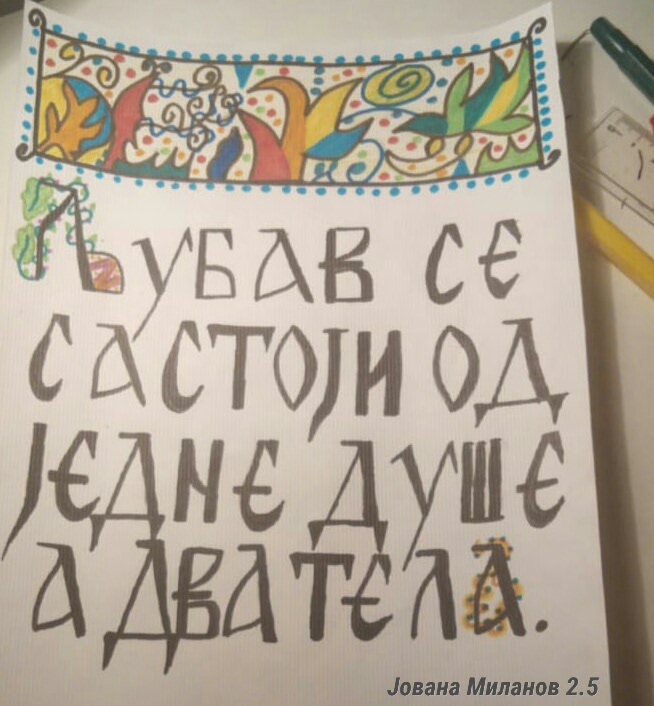 Љубав се
састоји од
једне душе
а два тела.
Јована Миланов 2.5